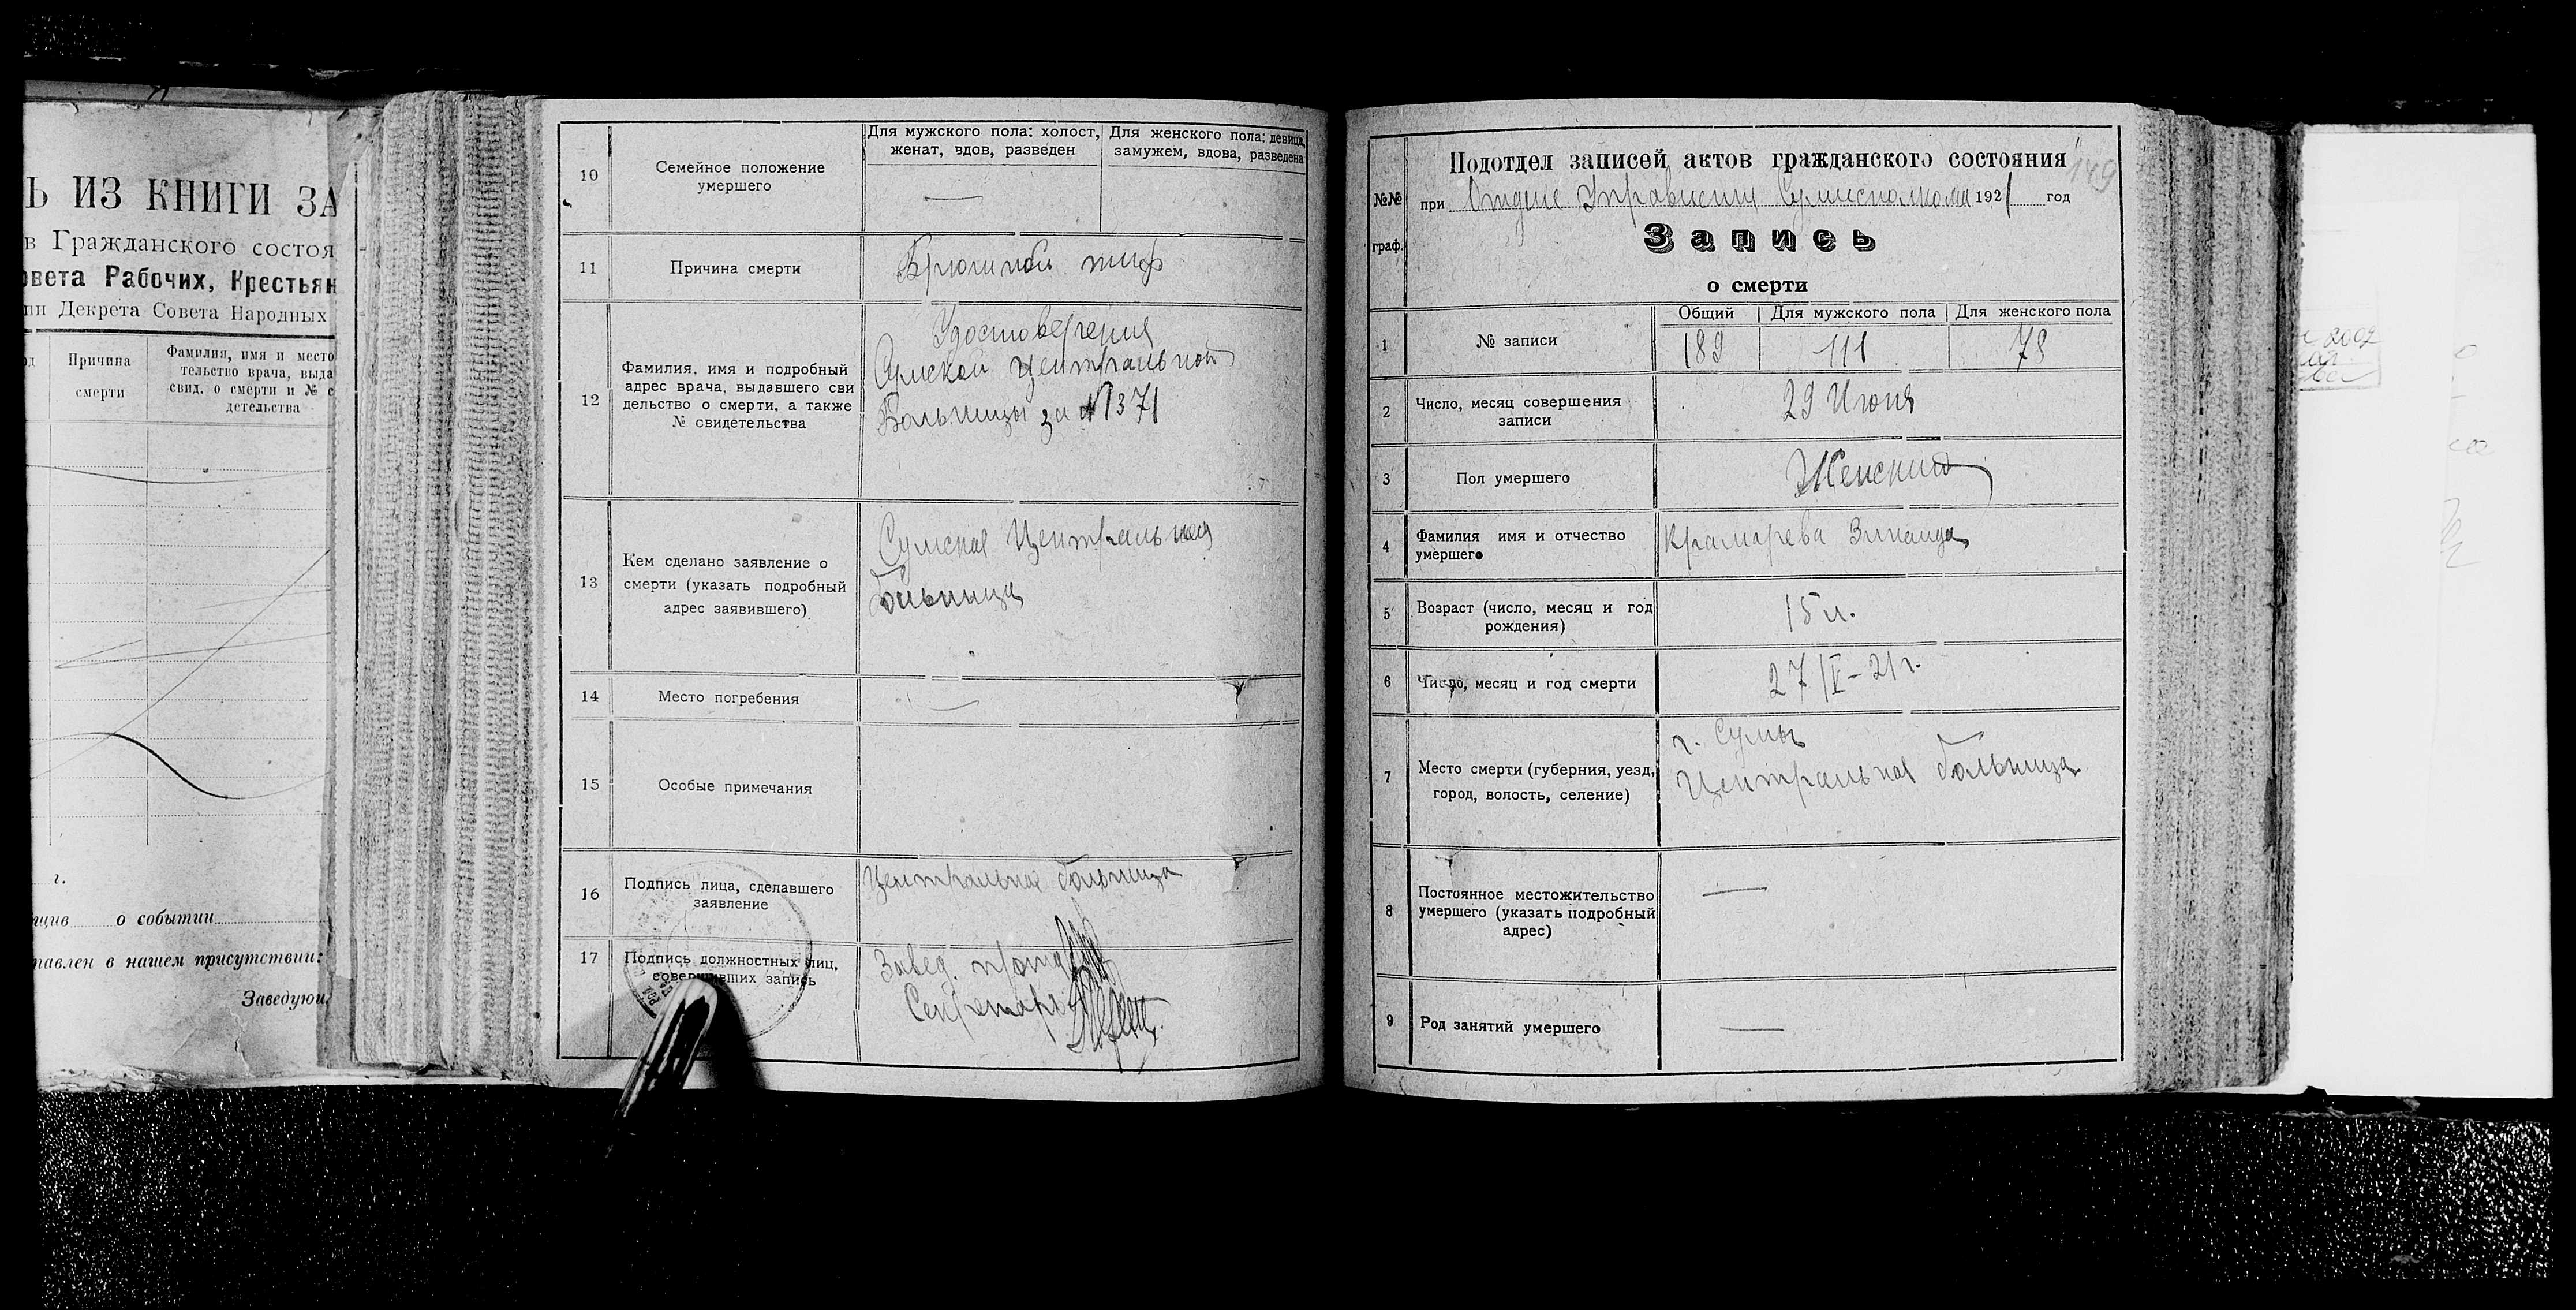 Ь ИЗ КНИГИ ЗА
в Гражданского состоя
овета Рабочих, Крестьян
ии Декрета Совета Народных
Причина смерти
Фамилия, имя и место
тельство врача, выда
свид. о смерти и № с
детельства
г.
о событии
тавлен в нашем присутствии:
Заведующ
10
Семейное положение
умершего
Для мужского пола: холост,
женат, вдов, разведен
Для женского пола: девица,
замужем, вдова, разведена
—
11
Причина смерти
Брюшной тиф
12
Фамилия, имя и подробный
адрес врача, выдавшего сви
дельство о смерти, а также
№ свидетельства
Удостоверения
Сумской Центральной
Больницы за №1371
13
Кем сделано заявление о
смерти (указать подробный
адрес заявившего)
Сумская Центральная
больница
14
Место погребения
—
15
Особые примечания
16
Подпись лица, сделавшего
заявление
Центральная больница
17
Подпись должностных лиц,
совершивших запись
Завед.
Секретарь
№№
граф.
Подотдел записей актов гражданского состояния
149
при Отделе Управления Сумисполкома 1921 год
Запись
о смерти
1
№ записи
Общий
Для мужского пола
Для женского пола
189
111
78
2
Число, месяц совершения
записи
29 Июня
3
Пол умершего
Женский
4
Фамилия имя и отчество
умершего
Крамарева Зинаида
5
Возраст (число, месяц и год
рождения)
15 л.
6
Число, месяц и год смерти
27/V-21 г.
7
Место смерти (губерния, уезд,
город, волость, селение)
г. Сумы
Центральная больница
8
Постоянное местожительство
умершего (указать подробный
адрес)
—
9
Род занятий умершего
—